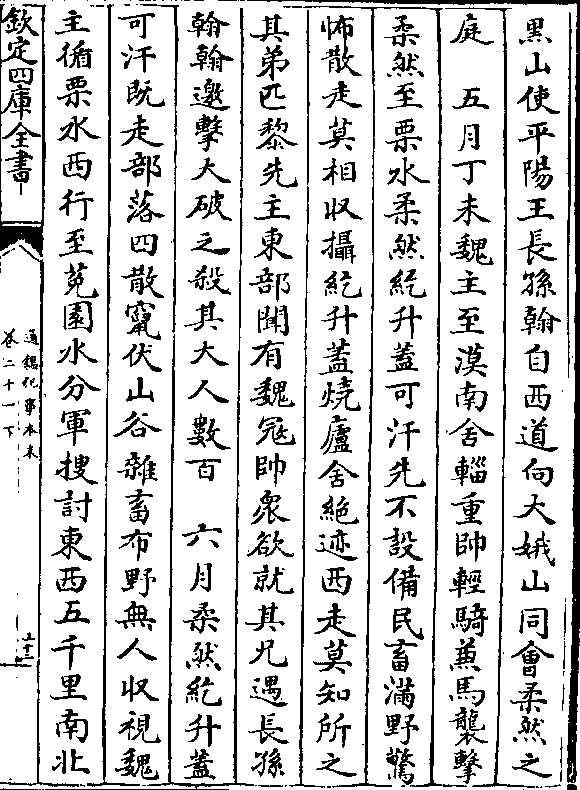 黒山使平陽王長孫翰自西道向大娥山同會柔然之
庭　五月丁未魏主至漠南舍輜重帥輕騎兼馬襲擊
柔然至栗水柔然紇升蓋可汗先不設備民畜滿野驚
怖散走莫相收攝紇升蓋燒廬舍絶迹西走莫知所之
其弟匹黎先主東部聞有魏冦帥衆欲就其兄遇長孫
翰翰邀擊大破之殺其大人數百　六月柔然紇升蓋
可汗既走部落四散竄伏山谷雜畜布野無人收視魏
主循栗水西行至菟園水分軍搜討東西五千里南北
欽定四庫全書
通鑑紀事本末
卷二十一下